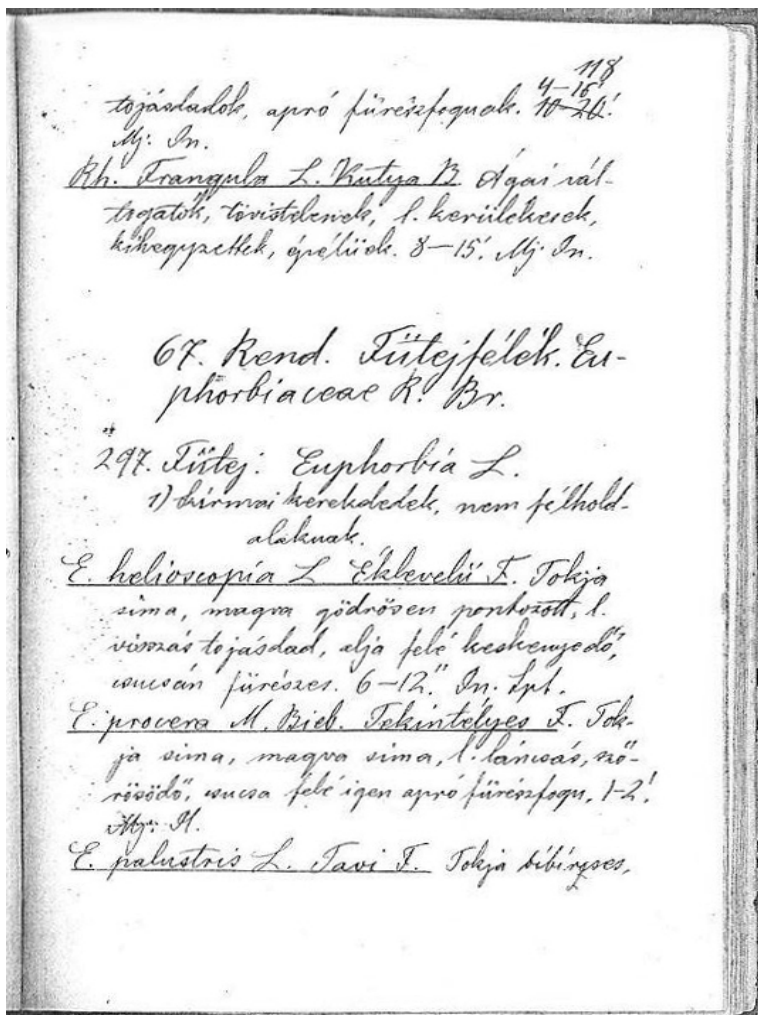 118
4–15'
tojásdadok, apró fürészfoguak. 10–20.'
Mj. Jn.
Rh. Frangula L. Kutya B Ágai vál-
togatók, tövistelenek, l. kerülékesek,
kihegyzettek, épélüek. 8–15.' Mj. Jn.
67. Rend. Fütejfélék. Eu-
phorbiaceae R. Br.
297. Fütej: Euphorbia L.
1) Szirmai kerekdedek, nem félhold-
alakuak.
E. helioscopia L. Éklevelü F. Tokja
sima, magva gödrösen pontozott, l.
visszás tojásdad, alja felé keskenyedő,
csucsán fürészes. 6–12." Jn. Spt.
E. procera M. Bieb. Tekintélyes F. Tok-
ja sima, magva sima, l. láncsás, sző-
rösödő, csucsa felé igen apró fürészfogu, 1–2.'
Mj.
E. palustris L. Tavi F. Tokja bibircses,